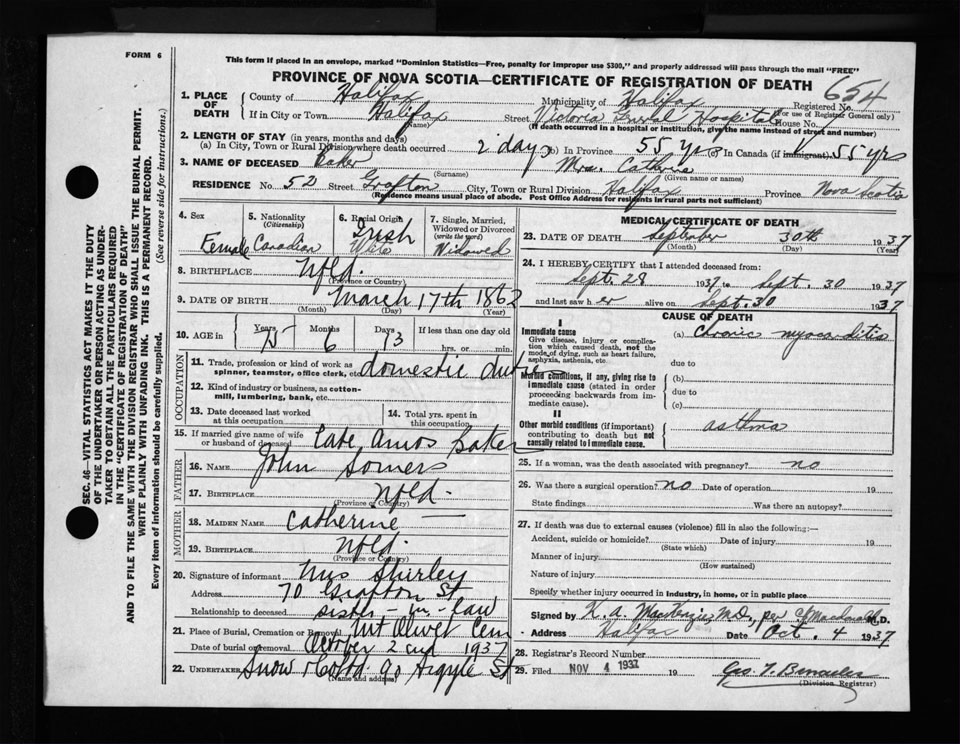 FORM 6
This form if placed in an envelope, marked "Dominion Statistics—Free, penalty for improper use $300," and properly addressed will pass through the mail "FREE"
PROVINCE OF NOVA SCOTIA—CERTIFICATE OF REGISTRATION OF DEATH
654
1. PLACE OF DEATH
County of Halifax Municipality of Halifax Registered No.
(For use of Registrar General only)
If in City or Town Halifax Street Victoria Hospital House No.
(Name) (If death occurred in a hospital or institution, give the name instead of street and number)
2. LENGTH OF STAY (in years, months and days)
(a) In City, Town or Rural Division where death occurred 2 days (b) In Province 55 yrs (c) In Canada (if immigrant) 55 yrs
3. NAME OF DECEASED Baker Mrs. Cathrine
(Surname) (Given name or names)
RESIDENCE No. 52 Street Grafton City, Town or Rural Division Halifax Province Nova Scotia
(Residence means usual place of abode. Post Office Address for residents in rural parts not sufficient)
SEC. 46—VITAL STATISTICS ACT MAKES IT THE DUTY
OF THE UNDERTAKER OR PERSON ACTING AS UNDER-
TAKER TO OBTAIN ALL THE PARTICULARS REQUIRED
IN THE "CERTIFICATE OF REGISTRATION OF DEATH"
AND TO FILE THE SAME WITH THE DIVISION REGISTRAR WHO SHALL ISSUE THE BURIAL PERMIT.
WRITE PLAINLY WITH UNFADING INK. THIS IS A PERMANENT RECORD.
Every item of information should be carefully supplied. (See reverse side for instructions.)
4. Sex Female
5. Nationality (Citizenship) Canadian
6. Racial Origin Irish
7. Single, Married, Widowed or Divorced (write the word) Widowed
8. BIRTHPLACE Nfld.
(Province or Country)
9. DATE OF BIRTH March 17th 1862
(Month) (Day) (Year)
10. AGE in Years 75 Months 6 Days 13 If less than one day old
hrs. or min.
OCCUPATION
11. Trade, profession or kind of work as spinner, teamster, office clerk, etc. domestic
12. Kind of industry or business, as cotton-mill, lumbering, bank, etc.
13. Date deceased last worked at this occupation
14. Total yrs. spent in this occupation
15. If married give name of wife or husband of deceased Late Amos Baker
FATHER
16. NAME John Somers
17. BIRTHPLACE Nfld.
(Province or Country)
MOTHER
18. MAIDEN NAME Catherine —
19. BIRTHPLACE Nfld.
(Province or Country)
20. Signature of informant Mrs Shirley
Address 70 Grafton St
Relationship to deceased sister-in-law
21. Place of Burial, Cremation or Removal Mt Olivet Cem
Date of burial or removal October 2nd 1937
22. UNDERTAKER Snow & Co Ltd. 90 Argyle St
(Name and address)
MEDICAL CERTIFICATE OF DEATH
23. DATE OF DEATH September 30th 1937
(Month) (Day) (Year)
24. I HEREBY CERTIFY that I attended deceased from:
Sept. 28 1937 to Sept. 30 1937
and last saw her alive on Sept. 30 1937
CAUSE OF DEATH
I
Immediate cause (a) Chronic myocarditis
Give disease, injury or complication which caused death, not the mode of dying, such as heart failure, asphyxia, asthenia, etc.
due to
Morbid conditions, if any, giving rise to immediate cause (stated in order proceeding backwards from immediate cause).
(b)
due to
(c)
II
Other morbid conditions (if important) contributing to death but not causally related to immediate cause.
asthma
25. If a woman, was the death associated with pregnancy? no
26. Was there a surgical operation? no Date of operation 19
State findings Was there an autopsy?
27. If death was due to external causes (violence) fill in also the following:—
Accident, suicide or homicide? Date of injury 19
(State which)
Manner of injury
(How sustained)
Nature of injury
Specify whether injury occurred in industry, in home, or in public place
Signed by K. A. MacKenzie, M.D., per M.D.
Address Halifax Date Oct. 4 1937
28. Registrar's Record Number
29. Filed NOV 4 1937
(Division Registrar)